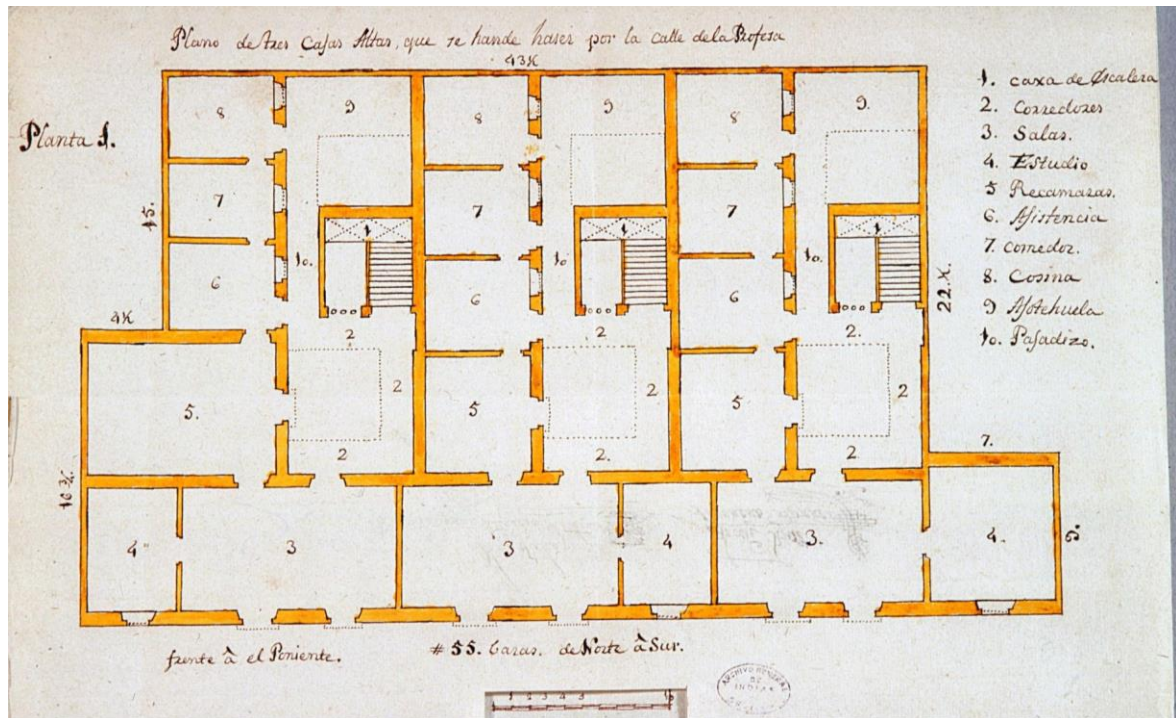 Plano de tres Casas Altas, que se hande haser por la calle de la Profesa
43½
Planta 1.
1. caxa de Escalera
2. Corredores
3. Salas.
4. Estudio
5 Recamaras.
6. Asistencia
7. comedor.
8. Cosina
9 Asotehuela
10. Pasadizo.
8 9 8 9 8 9.
15.
7 7 7
1 1 1
10. 10 10.
6 6 6
22.½.
4½
2 2 2.
2 2 2
5. 5 5
2 2. 2.
7.
16¾.
4 3 3 4 3. 4.
6.
frente â el Poniente.
# 55. Varas. de Norte â Sur.
1 2 3 4 5 10
ARCHIVO GENERAL
DE
INDIAS